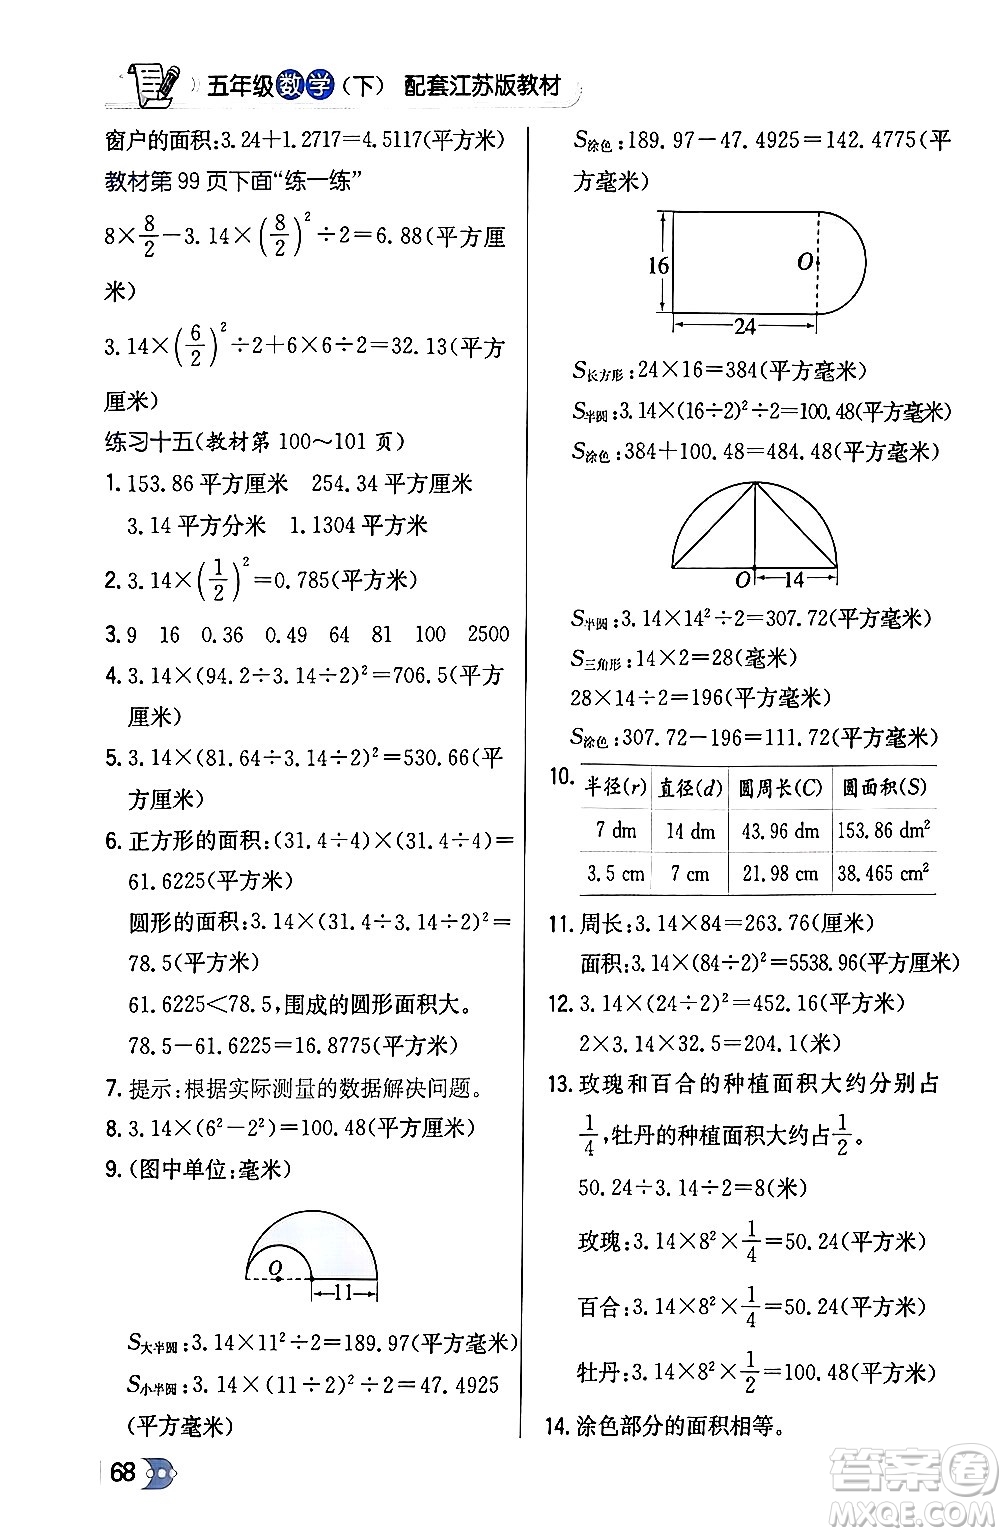 五年级数学(下) 配套江苏版教材
窗户的面积:3.24+1.2717=4.5117(平方米)
教材第99页下面“练一练”
8×8/2-3.14×(8/2)²÷2=6.88(平方厘
米)
3.14×(6/2)²÷2+6×6÷2=32.13(平方
厘米)
练习十五(教材第100~101页)
1. 153.86平方厘米 254.34平方厘米
3.14平方分米 1.1304平方米
2. 3.14×(1/2)²=0.785(平方米)
3. 9 16 0.36 0.49 64 81 100 2500
4. 3.14×(94.2÷3.14÷2)²=706.5(平方
厘米)
5. 3.14×(81.64÷3.14÷2)²=530.66(平
方厘米)
6. 正方形的面积:(31.4÷4)×(31.4÷4)=
61.6225(平方米)
圆形的面积:3.14×(31.4÷3.14÷2)²=
78.5(平方米)
61.6225<78.5,围成的圆形面积大。
78.5-61.6225=16.8775(平方米)
7. 提示:根据实际测量的数据解决问题。
8. 3.14×(6²-2²)=100.48(平方厘米)
9. (图中单位:毫米)
O
11
S大半圆:3.14×11²÷2=189.97(平方毫米)
S小半圆:3.14×(11÷2)²÷2=47.4925
(平方毫米)
S涂色:189.97-47.4925=142.4775(平
方毫米)
16
O
24
S长方形:24×16=384(平方毫米)
S半圆:3.14×(16÷2)²÷2=100.48(平方毫米)
S涂色:384+100.48=484.48(平方毫米)
O 14
S半圆:3.14×14²÷2=307.72(平方毫米)
S三角形:14×2=28(毫米)
28×14÷2=196(平方毫米)
S涂色:307.72-196=111.72(平方毫米)
10. 半径(r) 直径(d) 圆周长(C) 圆面积(S)
7 dm 14 dm 43.96 dm 153.86 dm²
3.5 cm 7 cm 21.98 cm 38.465 cm²
11. 周长:3.14×84=263.76(厘米)
面积:3.14×(84÷2)²=5538.96(平方厘米)
12. 3.14×(24÷2)²=452.16(平方米)
2×3.14×32.5=204.1(米)
13. 玫瑰和百合的种植面积大约分别占
1/4,牡丹的种植面积大约占1/2。
50.24÷3.14÷2=8(米)
玫瑰:3.14×8²×1/4=50.24(平方米)
百合:3.14×8²×1/4=50.24(平方米)
牡丹:3.14×8²×1/2=100.48(平方米)
14. 涂色部分的面积相等。
68
答案圈
MXQE.COM